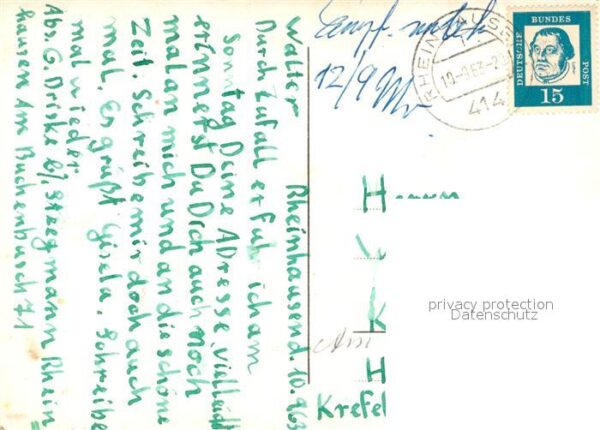 Walter
Rheinhausen d. 10. 9 63
Durch Zufall erfuhr ich am
Sonntag Deine Adresse. Vielleicht
erinnerst Du Dich auch noch
mal an mich und an die schöne
Zeit. Schreibe mir doch auch
mal. Es grüßt Gisela. Schreibe
mal wieder
Abs. G. Driske b/ Stegmann Rhein=
hausen Am Buchenbusch 71
12/9
RHEINHAUSEN
10-9.63-2
414
DEUTSCHE
BUNDES
POST
15
Herrn
H
W
K
H
Krefel
privacy protection
Datenschutz